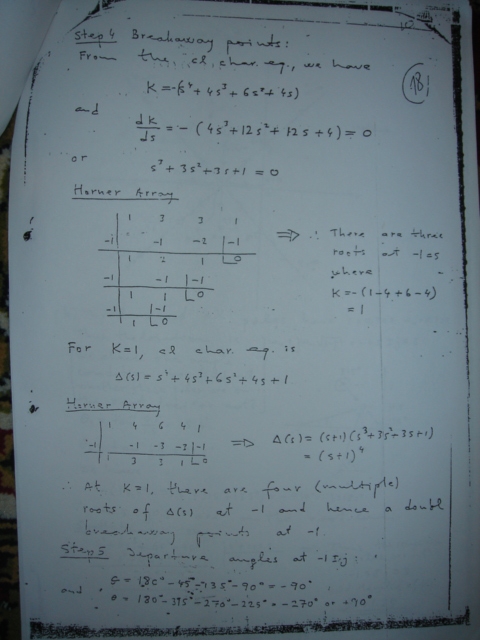 Step 4 Breakaway points:
From the cl char. eq., we have
K = -(s⁴ + 4s³ + 6s² + 4s)
181
and
dK/ds = - (4s³ + 12s² + 12s + 4) = 0
or
s³ + 3s² + 3s + 1 = 0
Horner Array
1 3 3 1
-1 -1 -2 -1
1 2 1 0
-1 -1 -1
1 1 0
-1 -1
1 0
⇒ ∴ There are three
roots at -1=s
where
K = -(1-4+6-4)
= 1
For K=1, cl char. eq. is
Δ(s) = s⁴ + 4s³ + 6s² + 4s + 1
Horner Array
1 4 6 4 1
-1 -1 -3 -3 -1
1 3 3 1 0
⇒ Δ(s) = (s+1)(s³+3s²+3s+1)
= (s+1)⁴
∴ At K=1, there are four (multiple)
roots of Δ(s) at -1 and hence a double
breakaway points at -1.
Step 5 Departure angles at -1±j:
θ = 180° - 45° - 135° - 90° = -90°
and θ = 180° - 315° - 270° - 225° = -270° or +90°